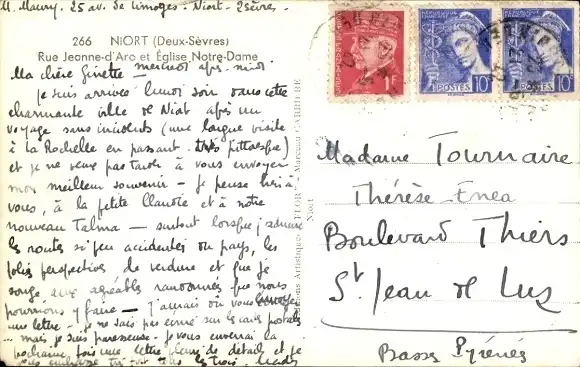 M. Maury. 25 av. de Limoges - Niort - 2 Sèvres.
266 NIORT (Deux-Sèvres)
Rue Jeanne-d'Arc et Église Notre-Dame
Ma chère Ginette - mercredi après-midi
Je suis arrivée lundi soir dans cette
charmante ville de Niort après un
voyage sans incidents (une longue visite
à La Rochelle en passant. très pittoresque)
et je ne veux pas tarder à vous envoyer
mon meilleur souvenir - Je pense bien à
vous, à la petite Claudie et à notre
nouveau Talma - surtout lorsque j'admire
les routes si peu accidentées du pays, les
jolies perspectives de verdure et que je
songe aux agréables randonnées que nous
pourrions y faire - J'aurais dû vous envoyer
une lettre - je ne sais pas écrire sur les cartes postales
... mais je suis paresseuse. je vous enverrai la
prochaine fois une lettre pleine de détails et je
vous embrasse très fort tous les trois.
Madame Tournaire
Thérèse-Enea
Boulevard Thiers
St Jean de Luz
Basses Pyrénées
1F
POSTES
10c
POSTES
10c
Niort